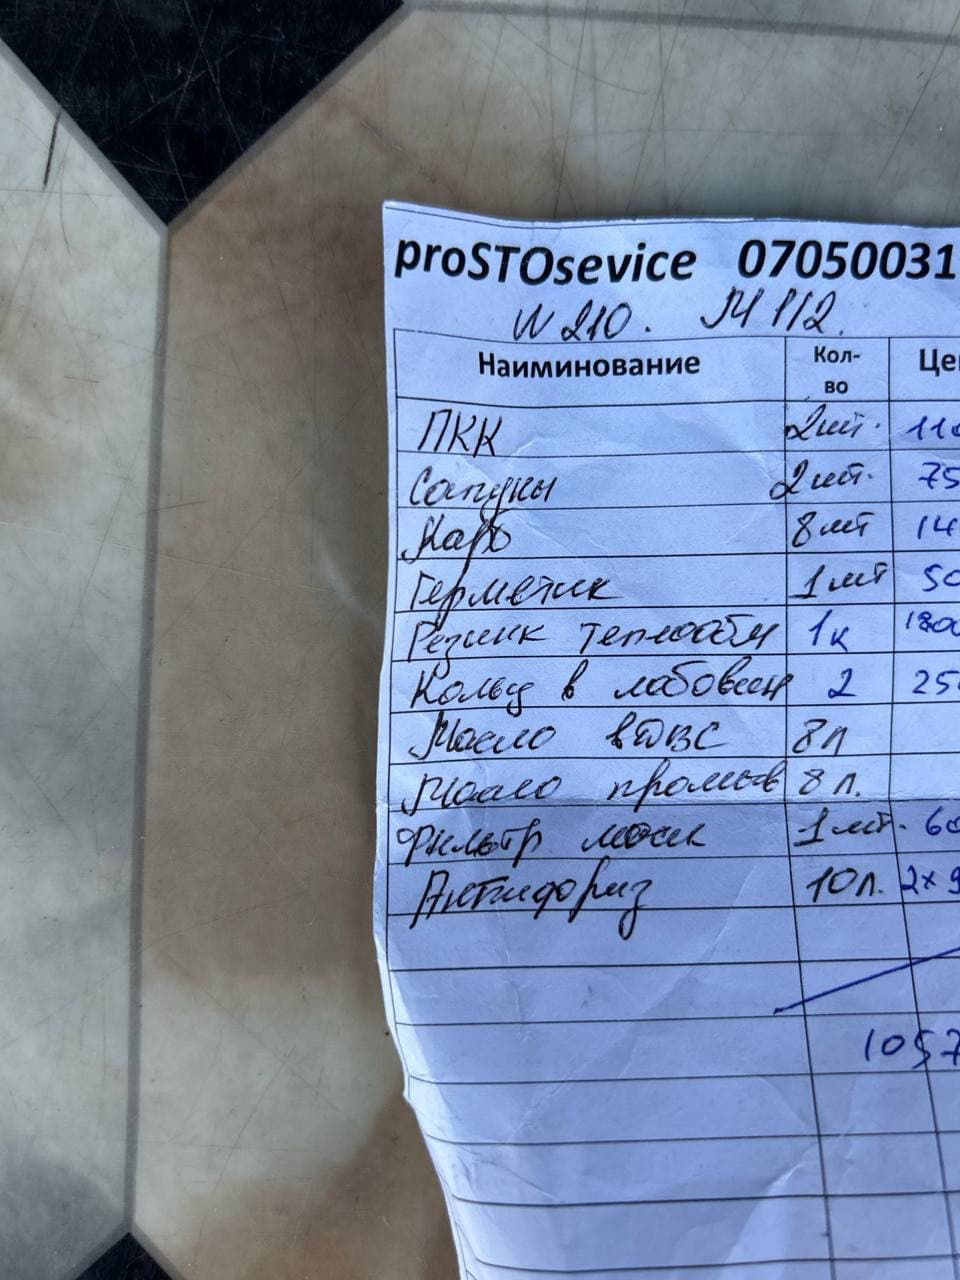 proSTOsevice 07050031
W 210. М 112.
Наиминование Кол-во Це
ПКК 2шт. 11
Сапуны 2шт. 75
8шт 14
Герметик 1шт 50
Резинк теплообм 1к 1800
Кольц в лабовин 2 25
Масло в ДВС 8л
Масло промыв 8 л.
Фильтр масл 1шт. 60
Антифриз 10л. 2х 9
1057